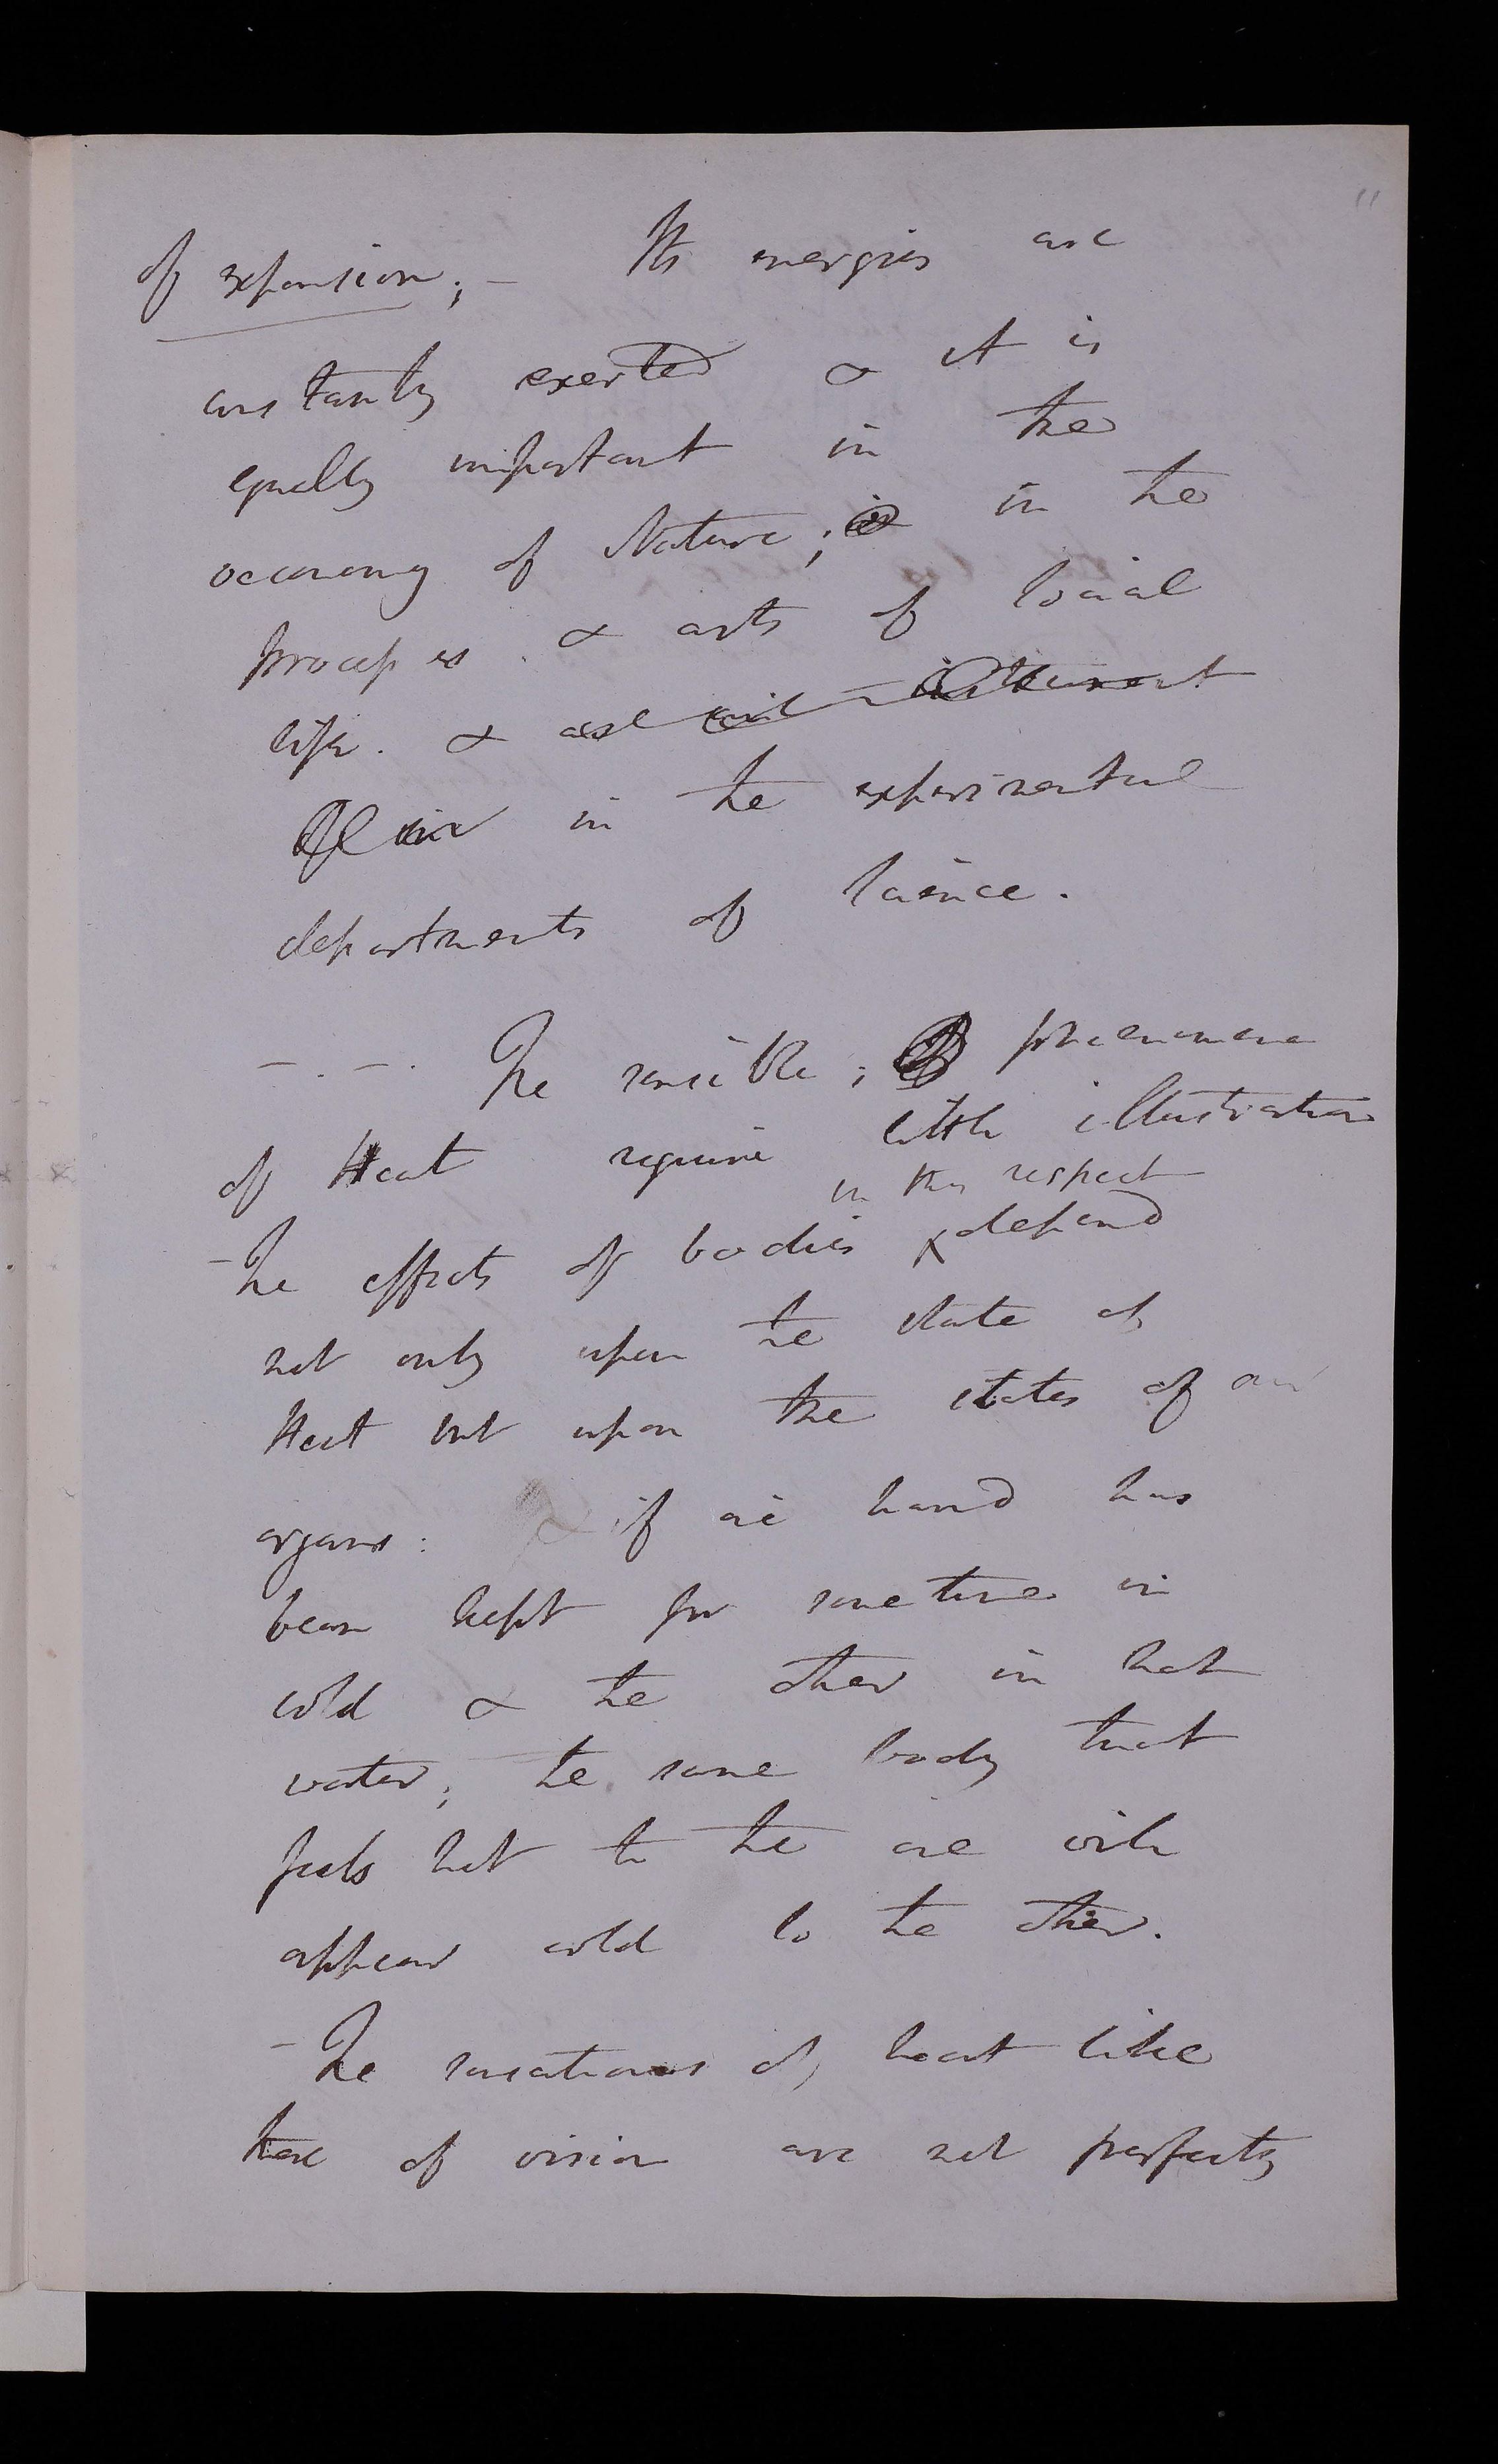 11
of expansion; – Its energies are
constantly exerted & it is
equally important in the
oeconomy of Nature; in the
processes. & arts of social
life. & 
in the experimental
departments of science.
– . – . The sensible; phaenomena
of Heat require little illustration
in this respect
– The effects of bodies depend
not only upon the state of
Heat but upon the states of our
organs: & if one hand has
been kept for sometime in
cold & the other in hot
water; the same body that
feels hot to the one will
appear cold to the other.
– The sensations of heat like
those of vision are not perfectly